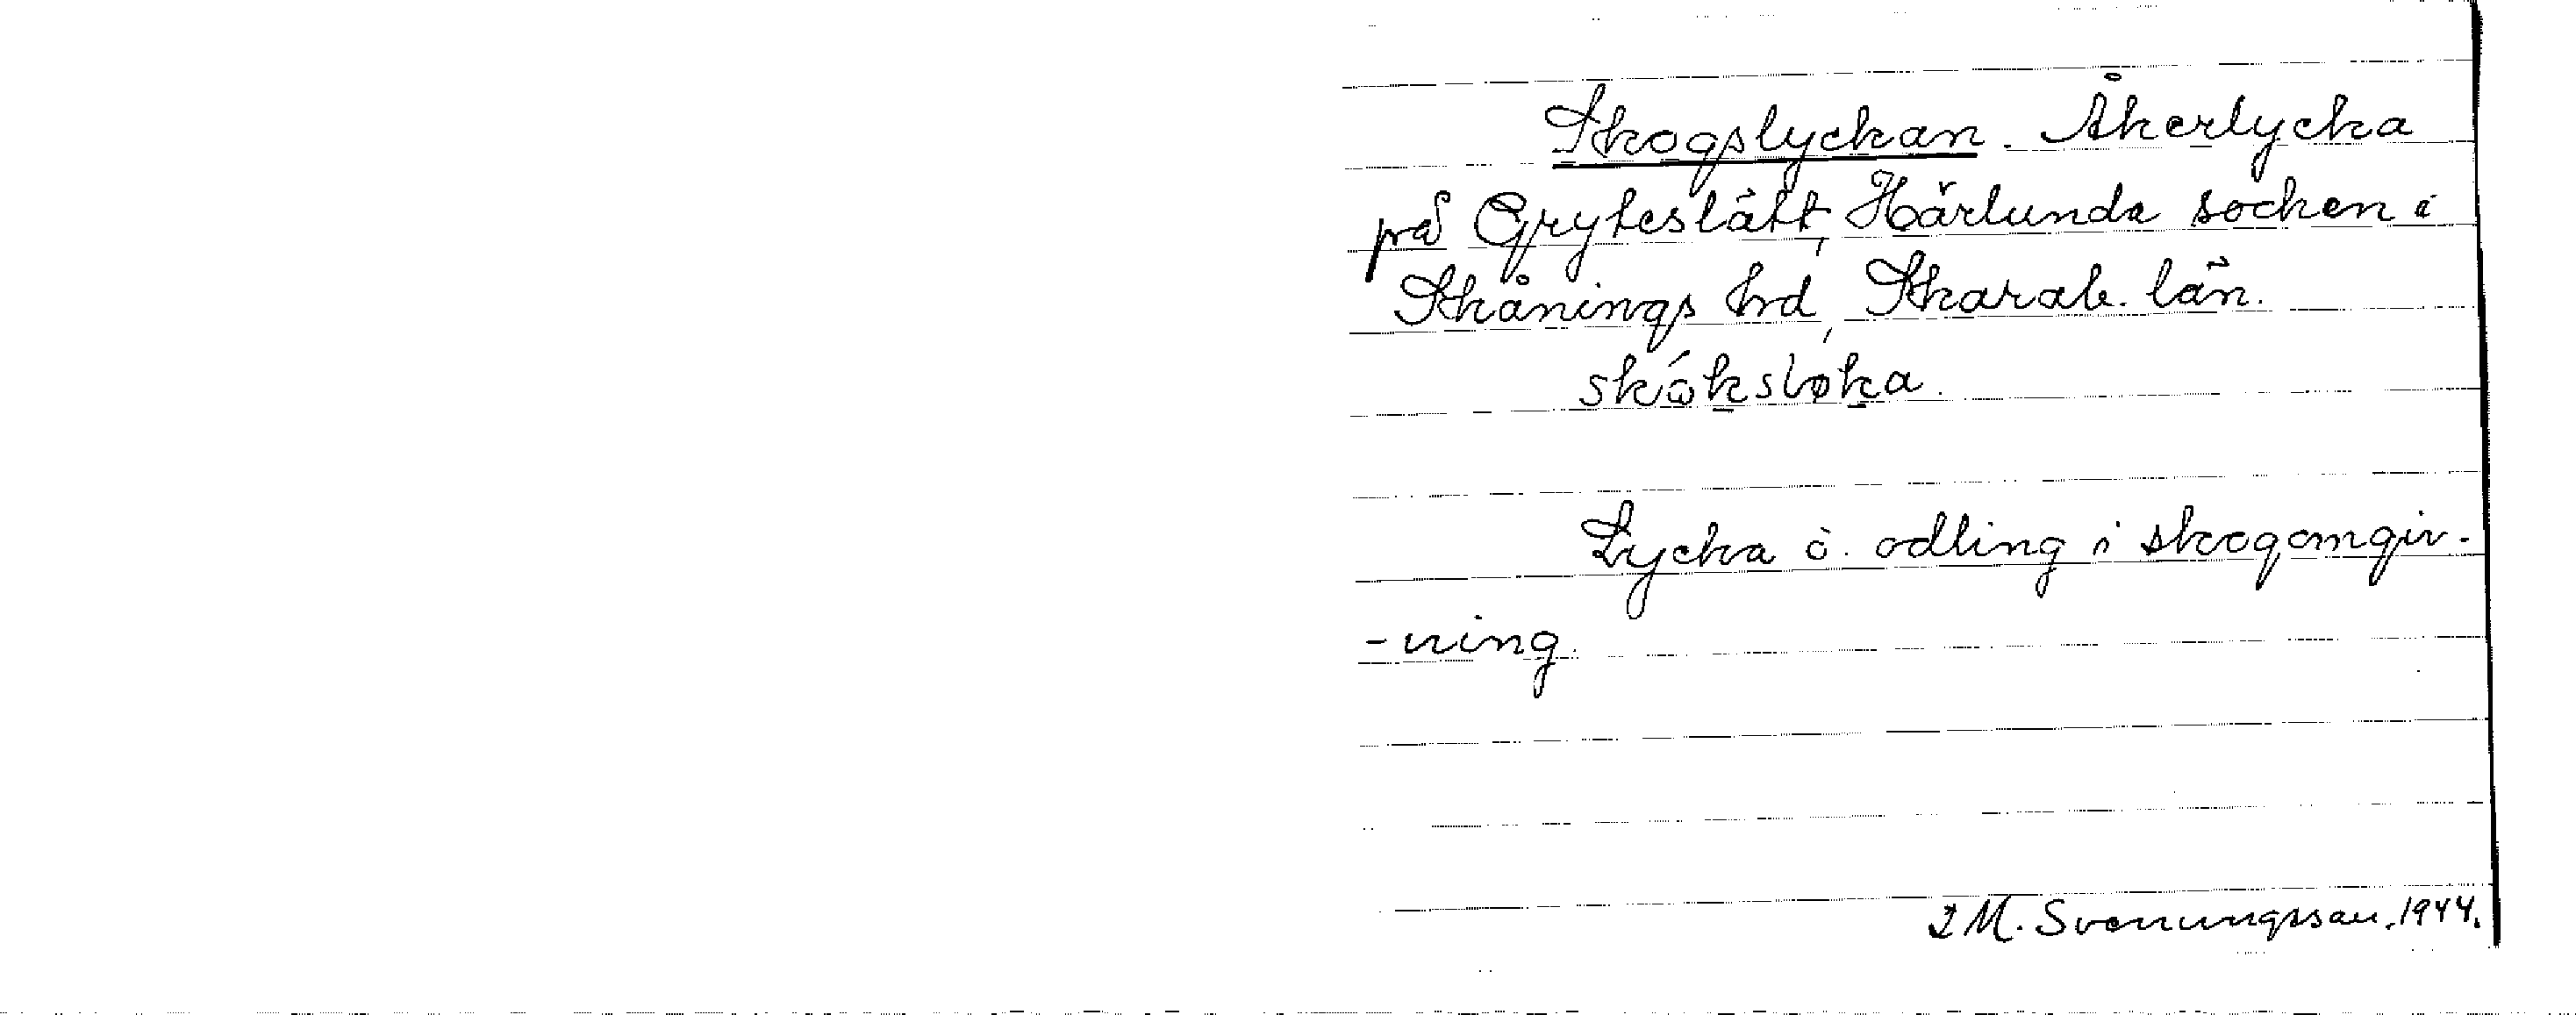 Skogslyckan. Åkerlycka
på Gryteslätt, Härlunda socken i
Skånings hrd, Skarab. län.
skóksløka.
Lycka ò. odling i skogomgiv-
-ning.
M. Svenungsson. 1944.